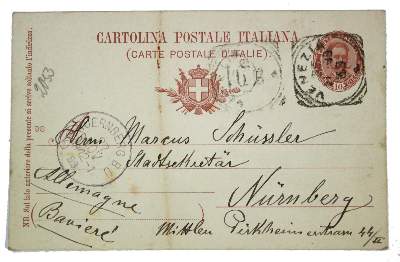 CARTOLINA POSTALE ITALIANA
(CARTE POSTALE D'ITALIE)
NB. Sul lato anteriore della presente si scrive soltanto l'indirizzo.
2053
VENEZIA
10
Herrn Marcus Schüssler
Stadtsekretär
Nürnberg
Allemagne
Bavière
Mittlere Pirkheimerstrasse 44/II